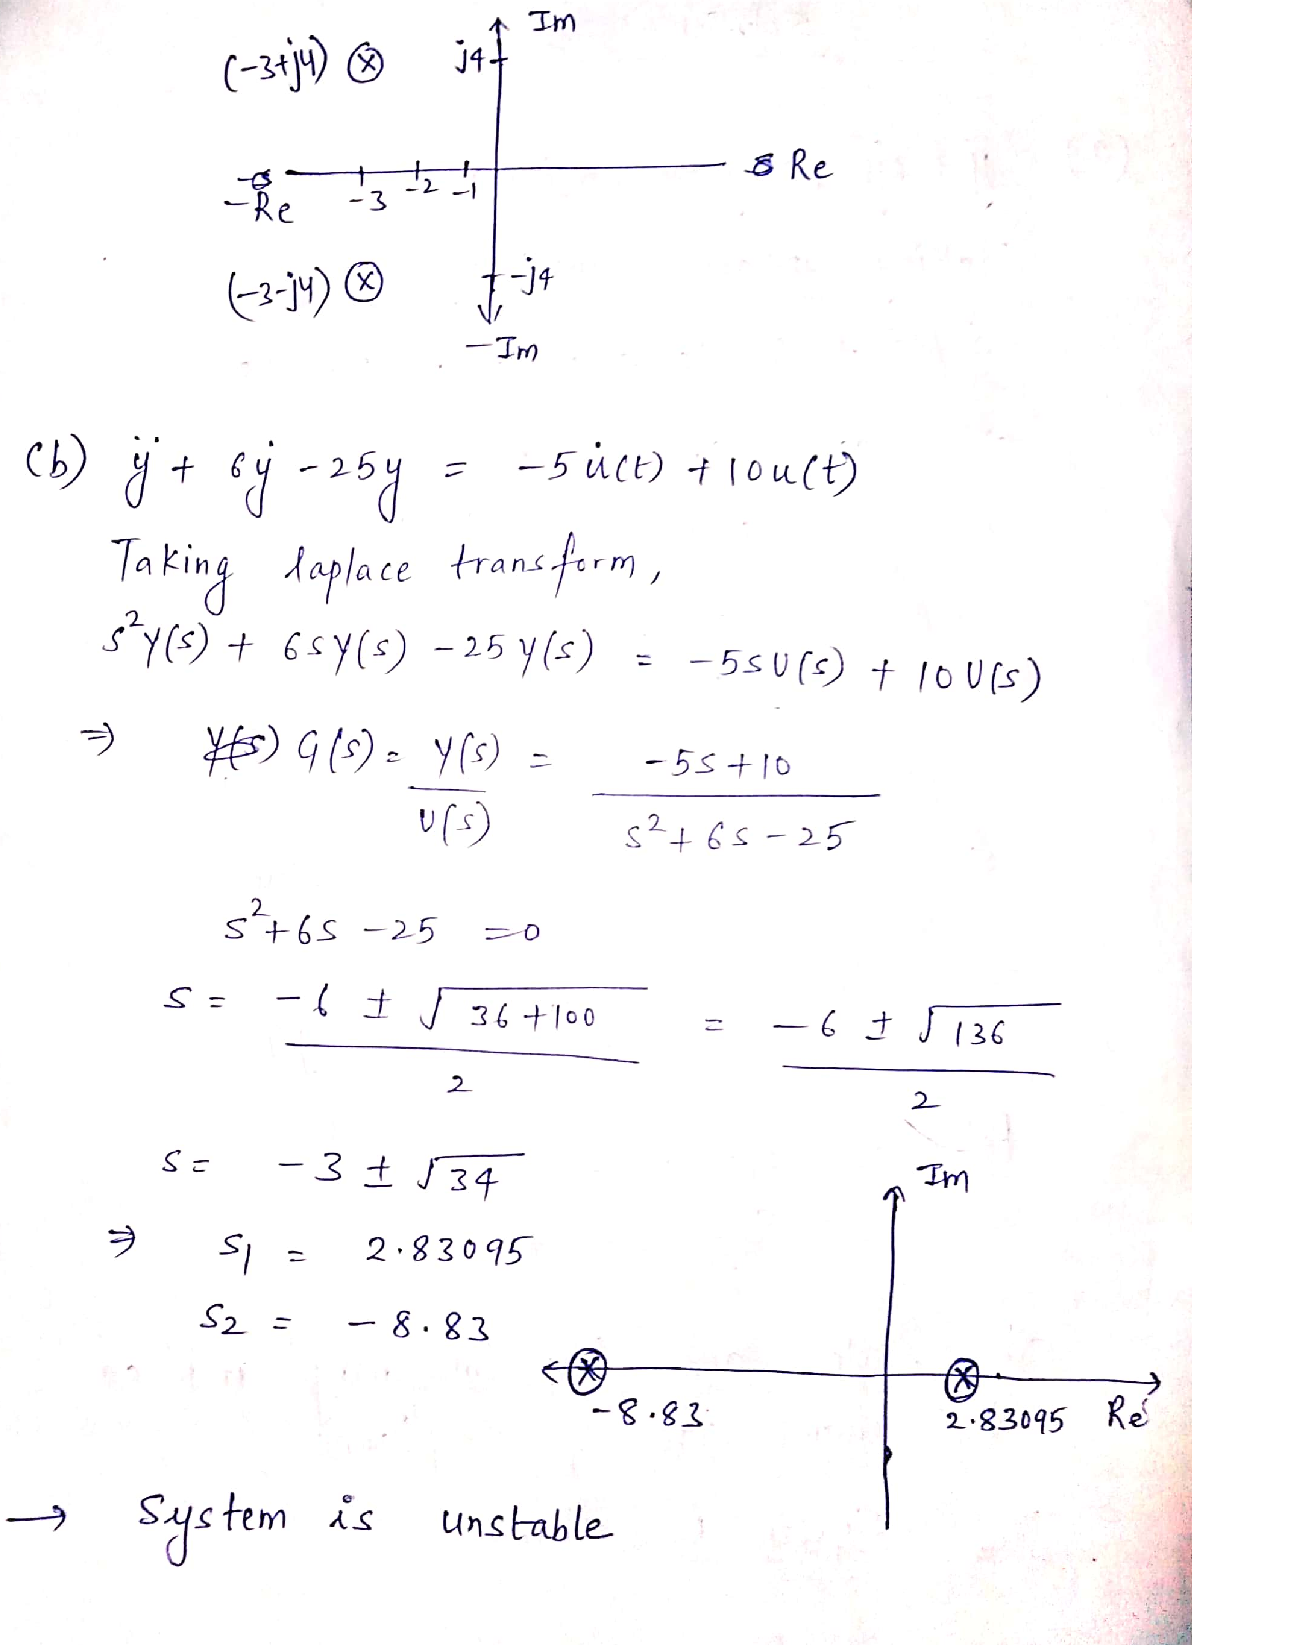 Im
(-3+j4) ⊗ j4
Re
-Re -3 -2 -1
(-3-j4) ⊗ -j4
-Im
(b) ÿ + 6ẏ - 25y = -5u̇(t) + 10u(t)
Taking laplace transform,
s²Y(s) + 6sY(s) - 25Y(s) = -5sU(s) + 10U(s)
⇒ G(s) = Y(s)/U(s) = (-5s+10)/(s²+6s-25)
s²+6s-25 =0
s = (-6 ± √(36+100))/2 = (-6 ± √136)/2
s = -3 ± √34
⇒ s1 = 2.83095
s2 = -8.83
Im
-8.83 2.83095 Re
→ System is unstable